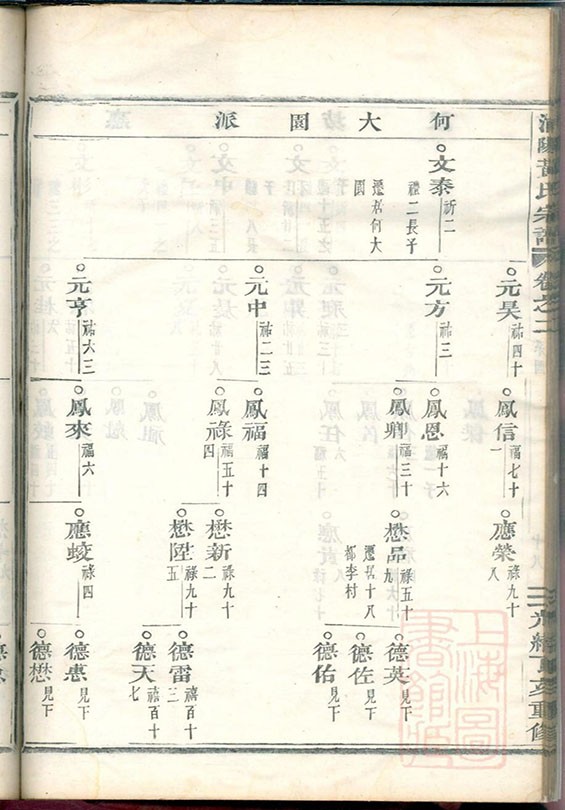 何大園派
文泰 祈二
禮二長子
遷居何大
園
元昊 祐四十
元方 祐三
元中 祐二三
元亨 祐六三
鳳信 福七十
一
鳳恩 福十六
鳳卿 福三十
鳳福 福十四
鳳祿 福五十
四
鳳來 福六
應榮 祿九十
八
懋品 祿五十
九
遷居十八
都李村
懋新 祿九十
二
懋陞 祿九十
五
應蛟 祿四
德英 見下
德佐 見下
德佑 見下
德雷 禧百十
三
德天 禧百十
七
德惠 見下
德懋 見下
黃氏宗譜 卷之二
光緒 亥重修
上海圖書館藏